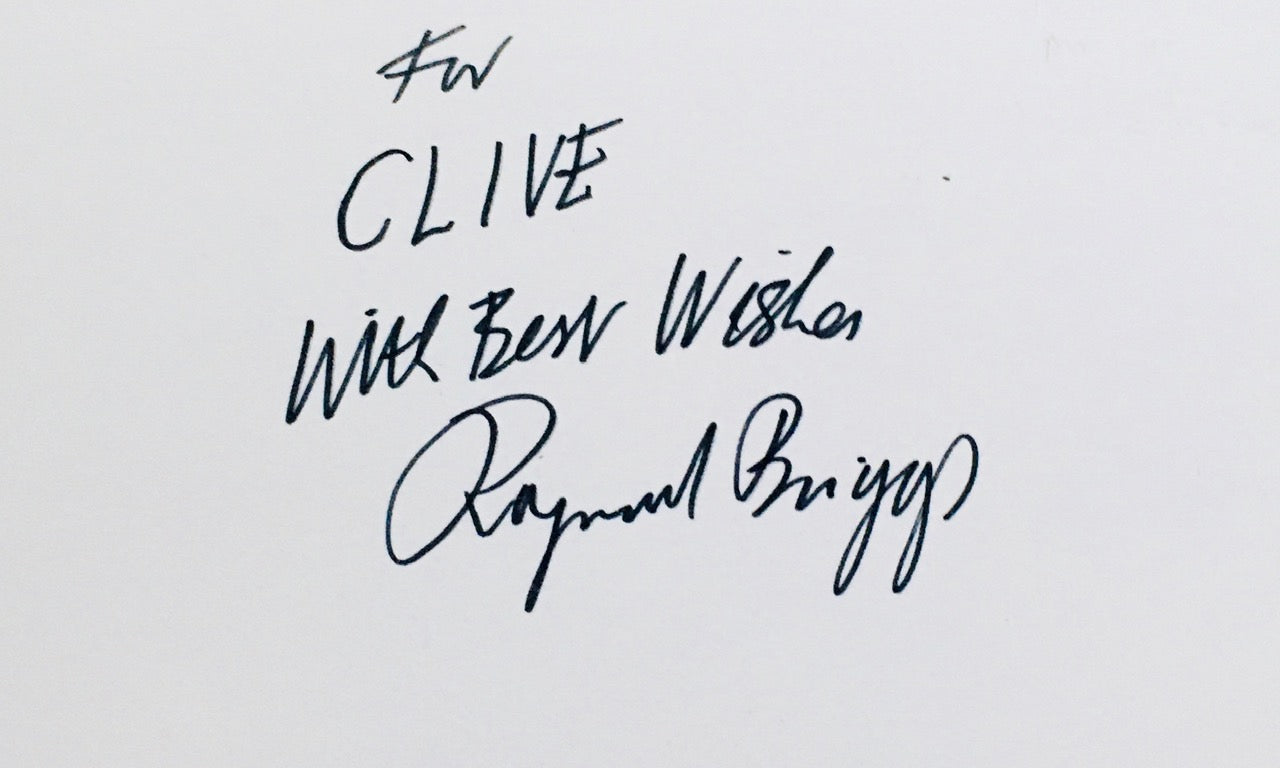 For
CLIVE
With Best Wishes
Raymond Briggs